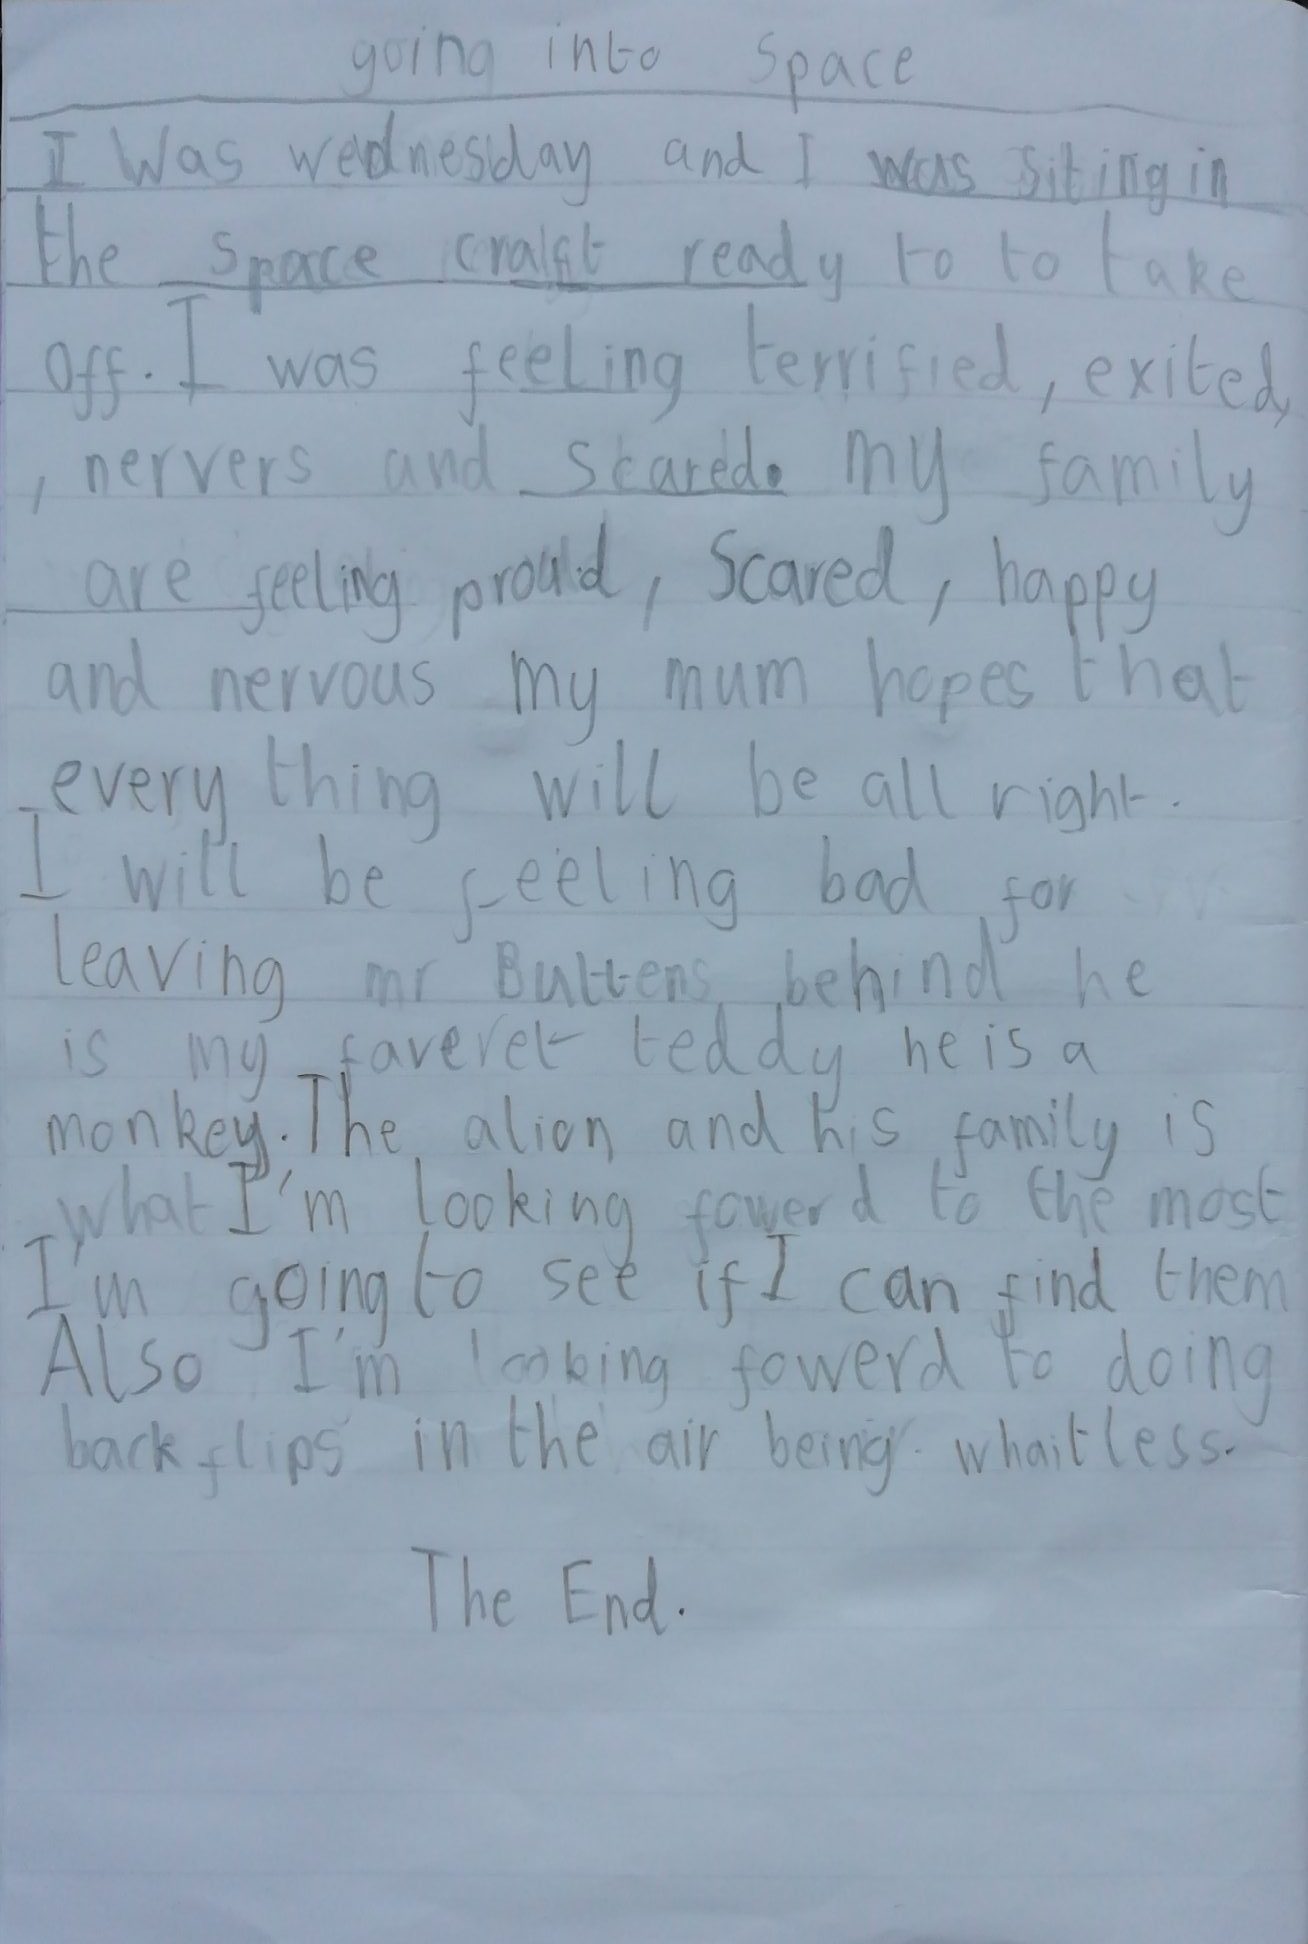 going into Space
I Was wednesday and I was siting in
the space craft ready to to take
off. I was feeling terrified, exited,
, nervers and scared. my family
are feeling proud, Scared, happy
and nervous my mum hopes that
every thing will be all right.
I will be feeling bad for
leaving mr Buttens behind he
is my faveret teddy he is a
monkey. The alion and his family is
what I'm looking fowerd to the most
I'm going to see if I can find them
Also I'm looking fowerd to doing
back flips in the air being whaitless.
The End.